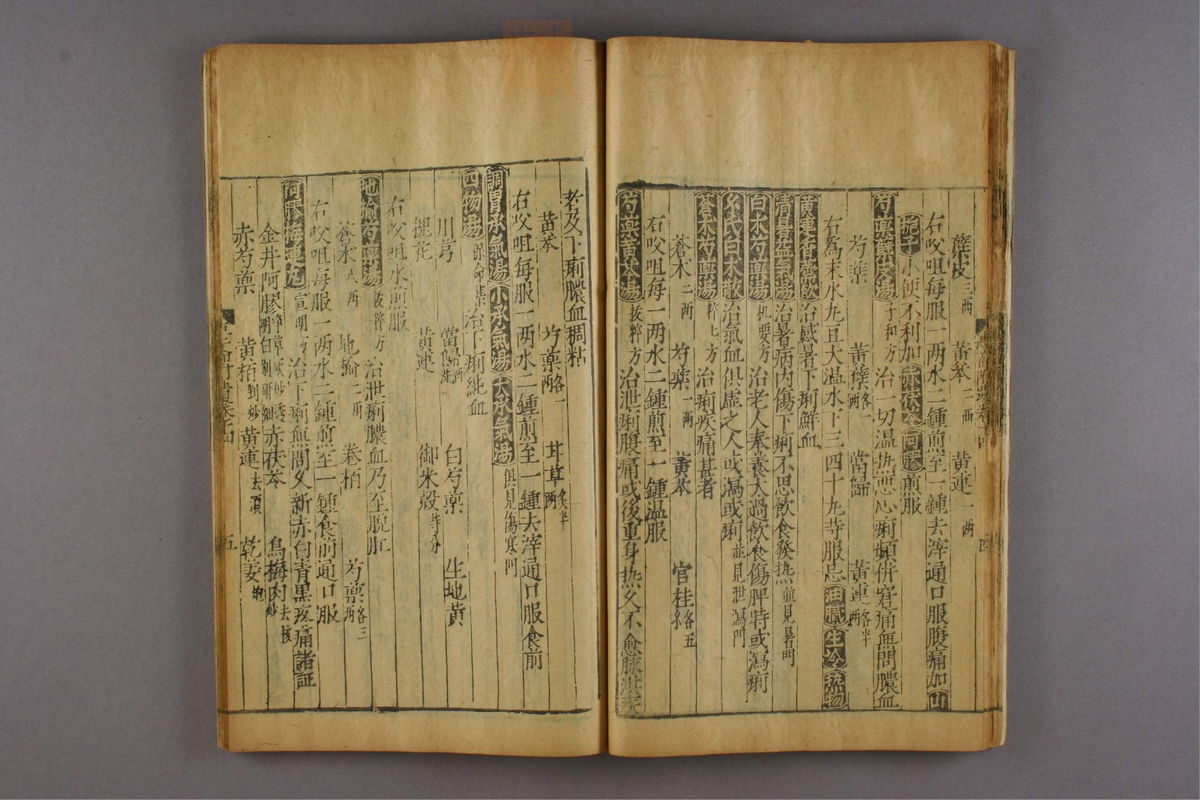 蘗皮三两 黄芩二两 黄連一两
右㕮咀每服一两水二鍾煎至一鍾去滓通口服腹痛加山
梔子小便不利加赤伏苓阿膠煎服
芍藥蘗皮湯子和方治一切温热悪心痢頻併窘痛無問膿血
芍藥 黄蘗各一两 當歸 黄連各半两
右為末水丸豆大温水下三四十丸寺服忌油膩生冷热物
黄連香薷散治感暑下痢鮮血
清暑益氣湯治暑病内傷下痢不思飲食發热並見暑門
白木芍藥湯机要方治老人奉養太過飲食傷脾時或瀉痢
白木散治氣血俱虛之人或瀉或痢並見泄瀉門
蒼木芍藥湯方治痢疾痛甚者
蒼木二两 芍藥一两 黄芩 官桂各五
右㕮咀每一两水二鍾煎至一鍾温服
芍藥黄芩湯拔粹方治泄痢腹痛或後重身热久不愈脉洪疾
者及下痢膿血稠粘
黄芩 芍藥各一两 甘草半两
右㕮咀每服一两水二鍾煎至一鍾去滓通口服食前
調胃承氣湯小承氣湯大承氣湯俱見傷寒門
四物湯治下痢純血
川芎 當歸 白芍藥 生地黄
槐花 黄連 御米殼等分
右㕮咀水煎服
地榆芍藥湯拔粹方治泄痢膿血乃至脱肛
蒼木八两 地榆二两 卷栢 芍藥各三两
右㕮咀每服一两水二鍾煎至一鍾食前通口服
阿膠梅連丸宣明方治下痢無問久新赤白青黒疼痛諸証
金井阿膠 赤茯苓 烏梅肉去核
赤芍藥 黄栢 黄連去須 乾姜